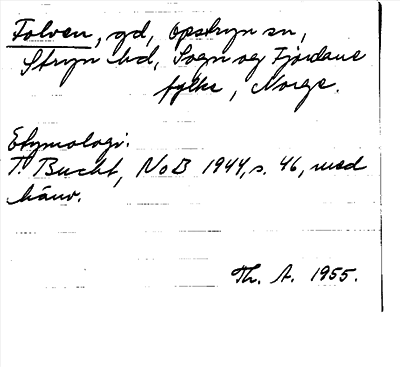 Folven, gd, Opstryn sn,
Stryn hd, Sogn og Fjordane
fylke, Norge.
Etymologi:
T. Bucht, NoB 1944, s. 46, med
hänv.
Th. A. 1955.